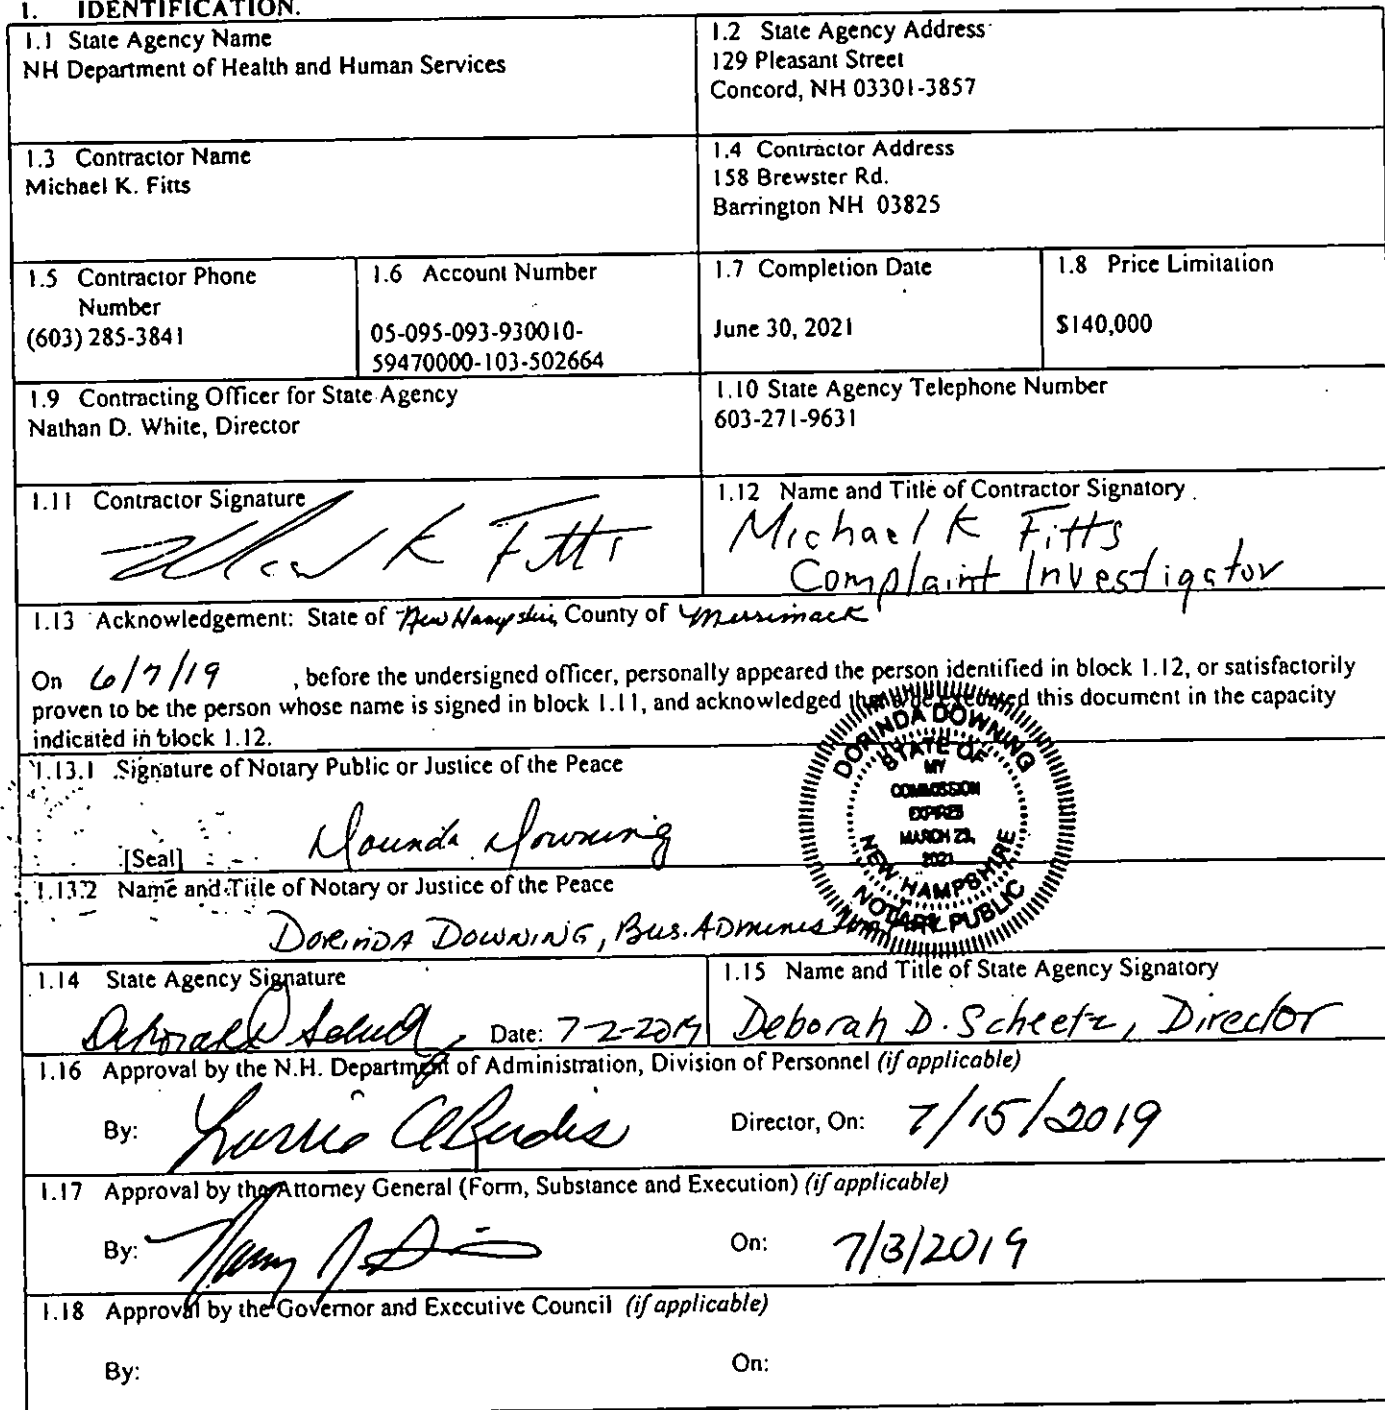 1. IDENTIFICATION.
1.1 State Agency Name
NH Department of Health and Human Services
1.2 State Agency Address
129 Pleasant Street
Concord, NH 03301-3857
1.3 Contractor Name
Michael K. Fitts
1.4 Contractor Address
158 Brewster Rd.
Barrington NH 03825
1.5 Contractor Phone
Number
(603) 285-3841
1.6 Account Number
05-095-093-930010-
59470000-103-502664
1.7 Completion Date
June 30, 2021
1.8 Price Limitation
$140,000
1.9 Contracting Officer for State Agency
Nathan D. White, Director
1.10 State Agency Telephone Number
603-271-9631
1.11 Contractor Signature
K Fitts
1.12 Name and Title of Contractor Signatory
Michael K Fitts
Complaint Investigator
1.13 Acknowledgement: State of New Hampshire, County of Merrimack
On 6/7/19 , before the undersigned officer, personally appeared the person identified in block 1.12, or satisfactorily
proven to be the person whose name is signed in block 1.11, and acknowledged that s/he executed this document in the capacity
indicated in block 1.12.
1.13.1 Signature of Notary Public or Justice of the Peace
[Seal] Dorinda Downing
DORINDA DOWNING
STATE OF
MY
COMMISSION
EXPIRES
MARCH 23,
2021
NEW HAMPSHIRE
NOTARY PUBLIC
1.13.2 Name and Title of Notary or Justice of the Peace
Dorinda Downing, Bus. Administrator
1.14 State Agency Signature
Date: 7-2-2019
1.15 Name and Title of State Agency Signatory
Deborah D. Scheetz, Director
1.16 Approval by the N.H. Department of Administration, Division of Personnel (if applicable)
By:
Director, On: 7/15/2019
1.17 Approval by the Attorney General (Form, Substance and Execution) (if applicable)
By:
On: 7/3/2019
1.18 Approval by the Governor and Executive Council (if applicable)
By:
On: